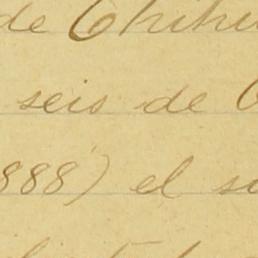 de Chihu
seis de
888) el su